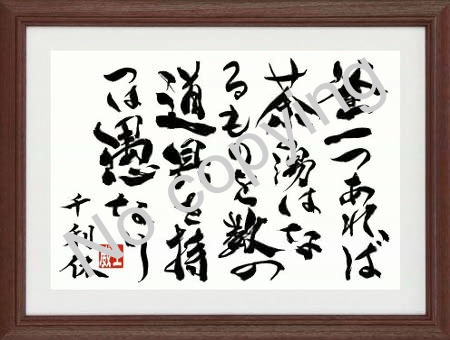 釜一つあれば
茶湯はな
るものを数の
道具を持
つは愚なり
千利休
No copying